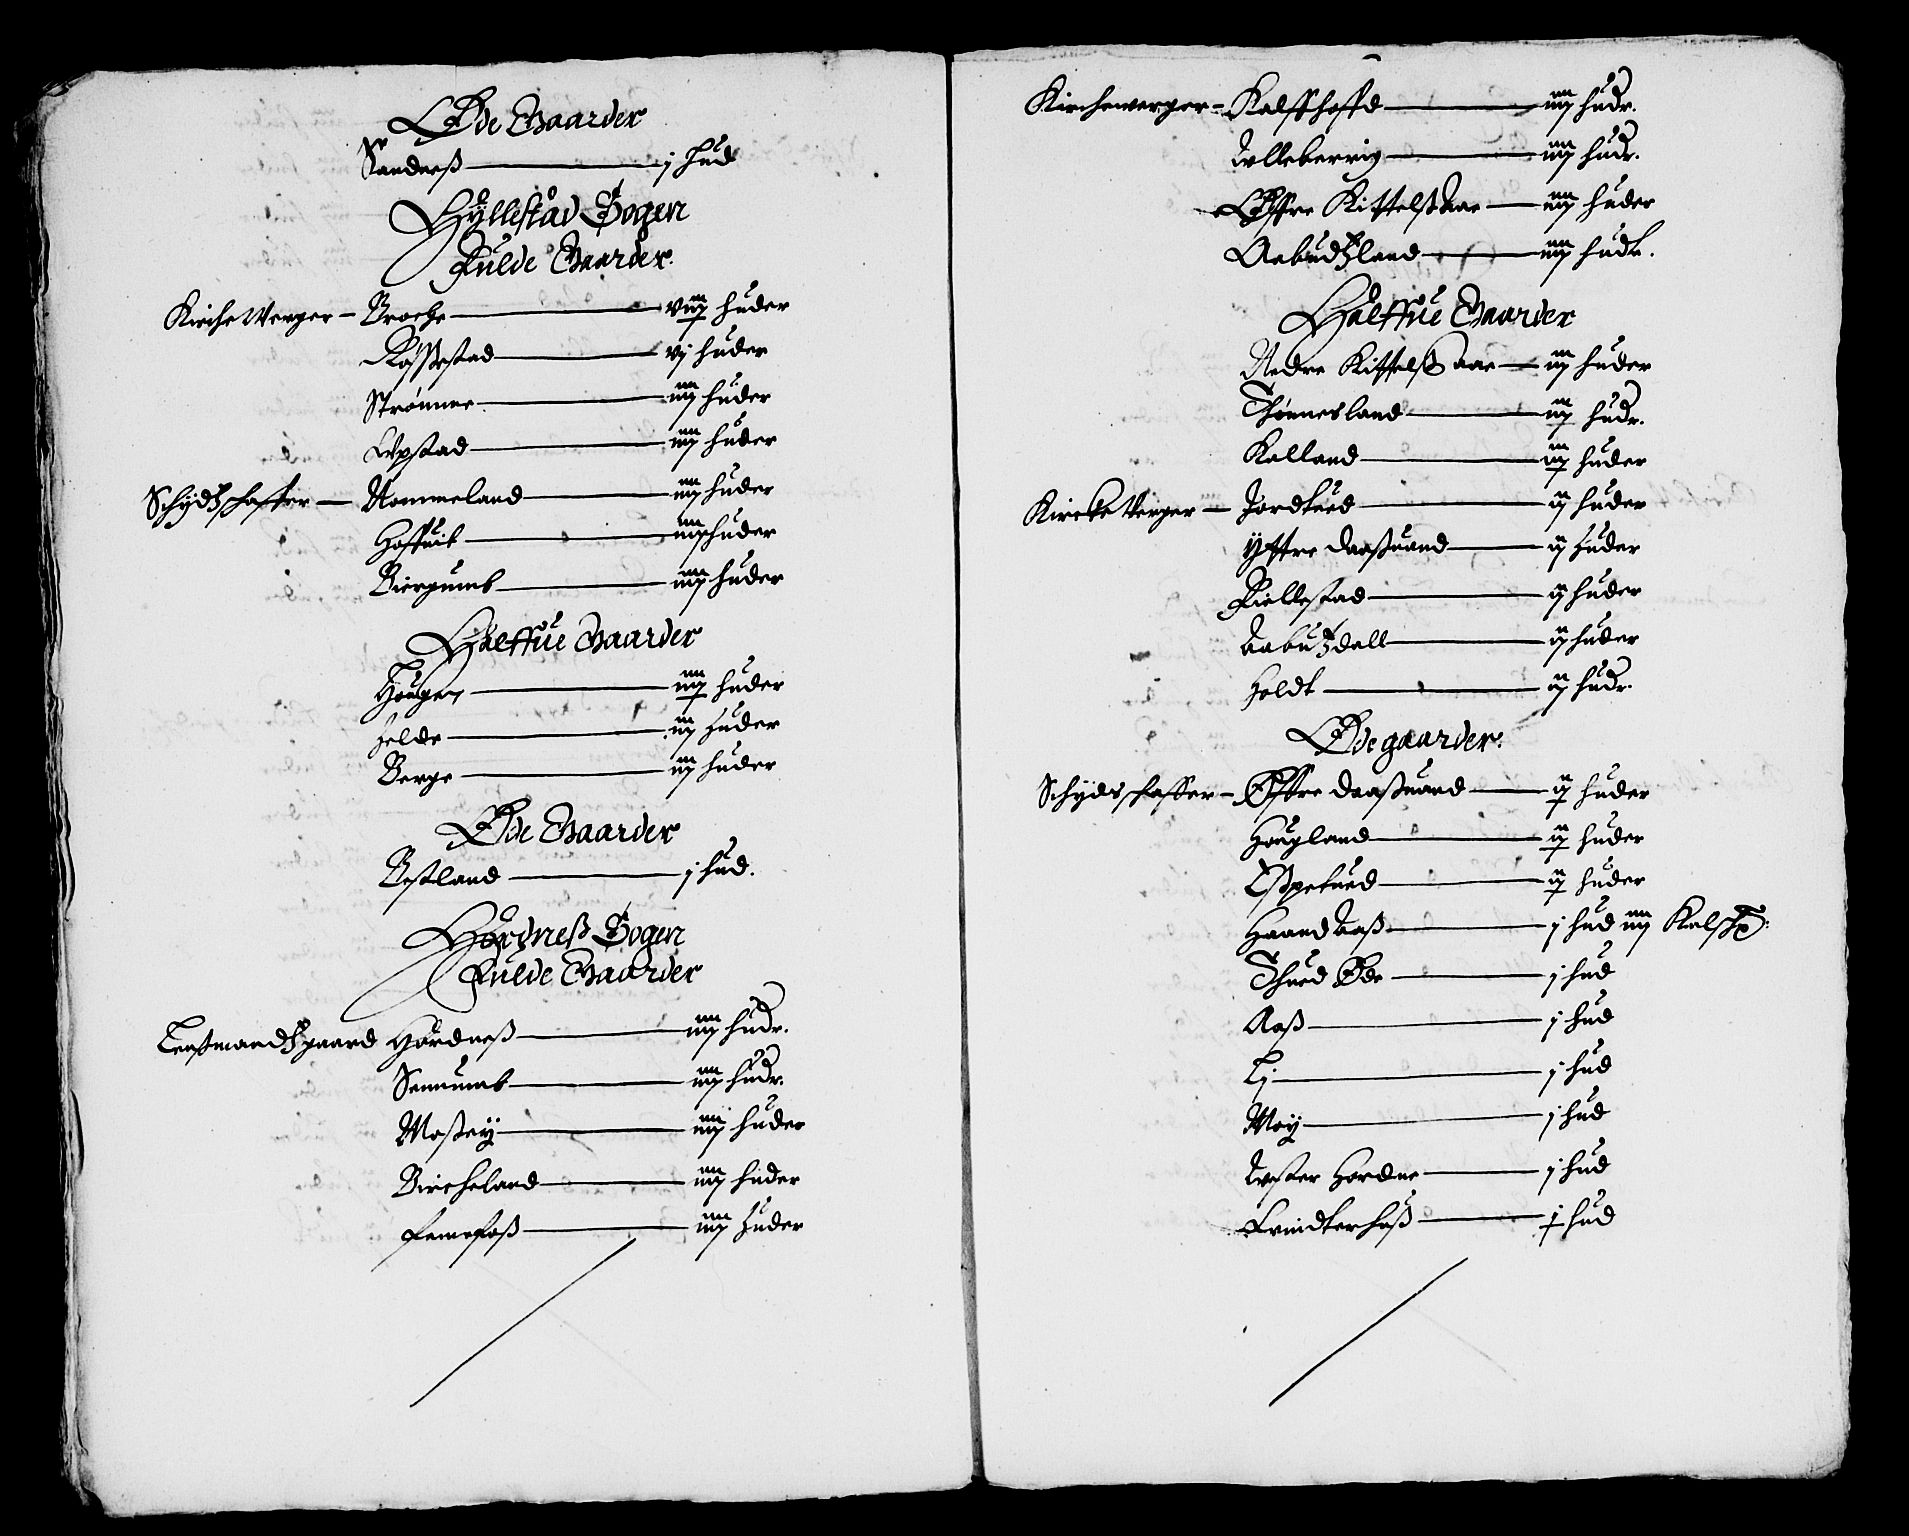 Øde Gaarder
Sandneß — j hud
Hyllestad Sogen
Fulde Gaarder.
Kirche Verger — Broche — viij huder
Røssestad — vj huder
Strømme — iiij huder
Vpstad — iiij huder
Schydtzschaffer — Nommeland — iiij huder
Hoffuit — iiij huder
Biergumb — iiij huder
Halffue Gaarder
Hougen — iiij huder
Helde — iij huder
Berge — iij huder
Øde Gaarder
Bestland — j hud.
Hordneß Sogen
Fulde Gaarder
Lenstmandtzgaard Hordneß — iiij hudr.
Sennumb — iiij hudr.
Moßey — iiij huder
Bircheland — iiij huder
Femefoß — iiij huder
Kirchewerger — Kalffhoffd — iiij hudr.
Vlleberrig — iiij hudr.
Øffre Kittelsaae — iiij huder
Aabudtzland — iiij hudr.
Halffue Gaarder
Nedre Kittelßaae — iij huder
Thønnesland — iij hudr.
Kalland — iij huder
Kircke Verger — Jordtued — ij huder
Yttre Daaßuand — ij huder
Kiellestad — ij huder
Aabutzdall — ij huder
Holdt — ij hudr.
Øde gaarder.
Schyds schaffer — Øffre Daaßuand — ij huder
Hougland — ij huder
Eßpetued — ij huder
Haand Aaß — j hud iiij Kalfsk:
Thued Øde — j hud
Aaß — j hud
Lj — j hud
Moy — j hud
Vester Hordne — j hud
huß — j hud